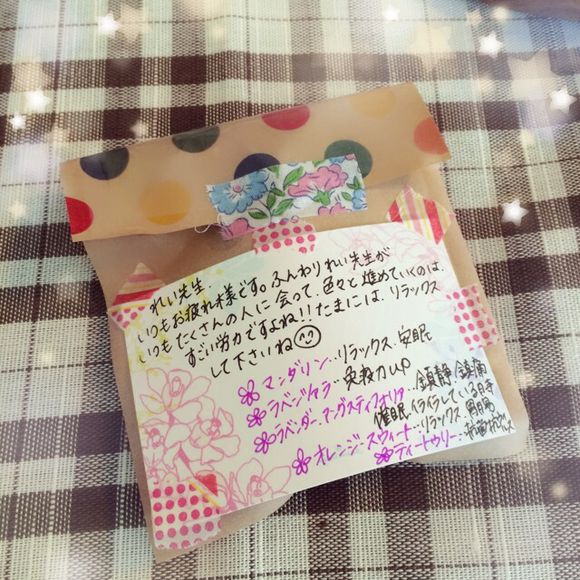 れい先生.
いつもお疲れ様です。ふんわりれい先生が
いつもたくさんの人に会って、色々と進めていくのは、
すごい労力ですよね!!たまには、リラックス
して下さいね
マンダリン…リラックス、安眠
ラベンサラ…免疫力up
ラベンダー・アングスティフォリア…鎮静、鎮痛
催眠、イライラしている時
オレンジ・スウィート…リラックス、胃腸
ティートゥリー…